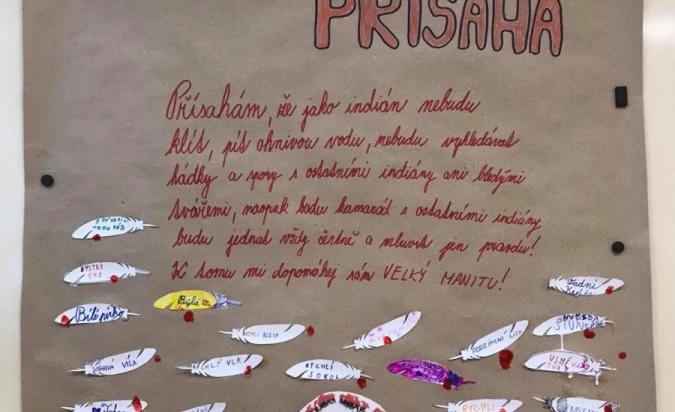 PŘÍSAHA
Přísahám, že jako indián nebudu
klít, pít ohnivou vodu, nebudu vyhledávat
hádky a spory s ostatními indiány ani bledými
tvářemi, naopak budu kamarád s ostatními indiány
budu jednat vždy čestně a mluvit jen pravdu!
K tomu mi dopomáhej sám VELKÝ MANITU!
VODOPÁD
BYSTRÉ
OKO
Bílé pírko
Bílá
VÍLA
VLK
RYCHLÝ
SOKOL
PODZIMNÍ LIST
HVĚZDA
RYCHLÝ